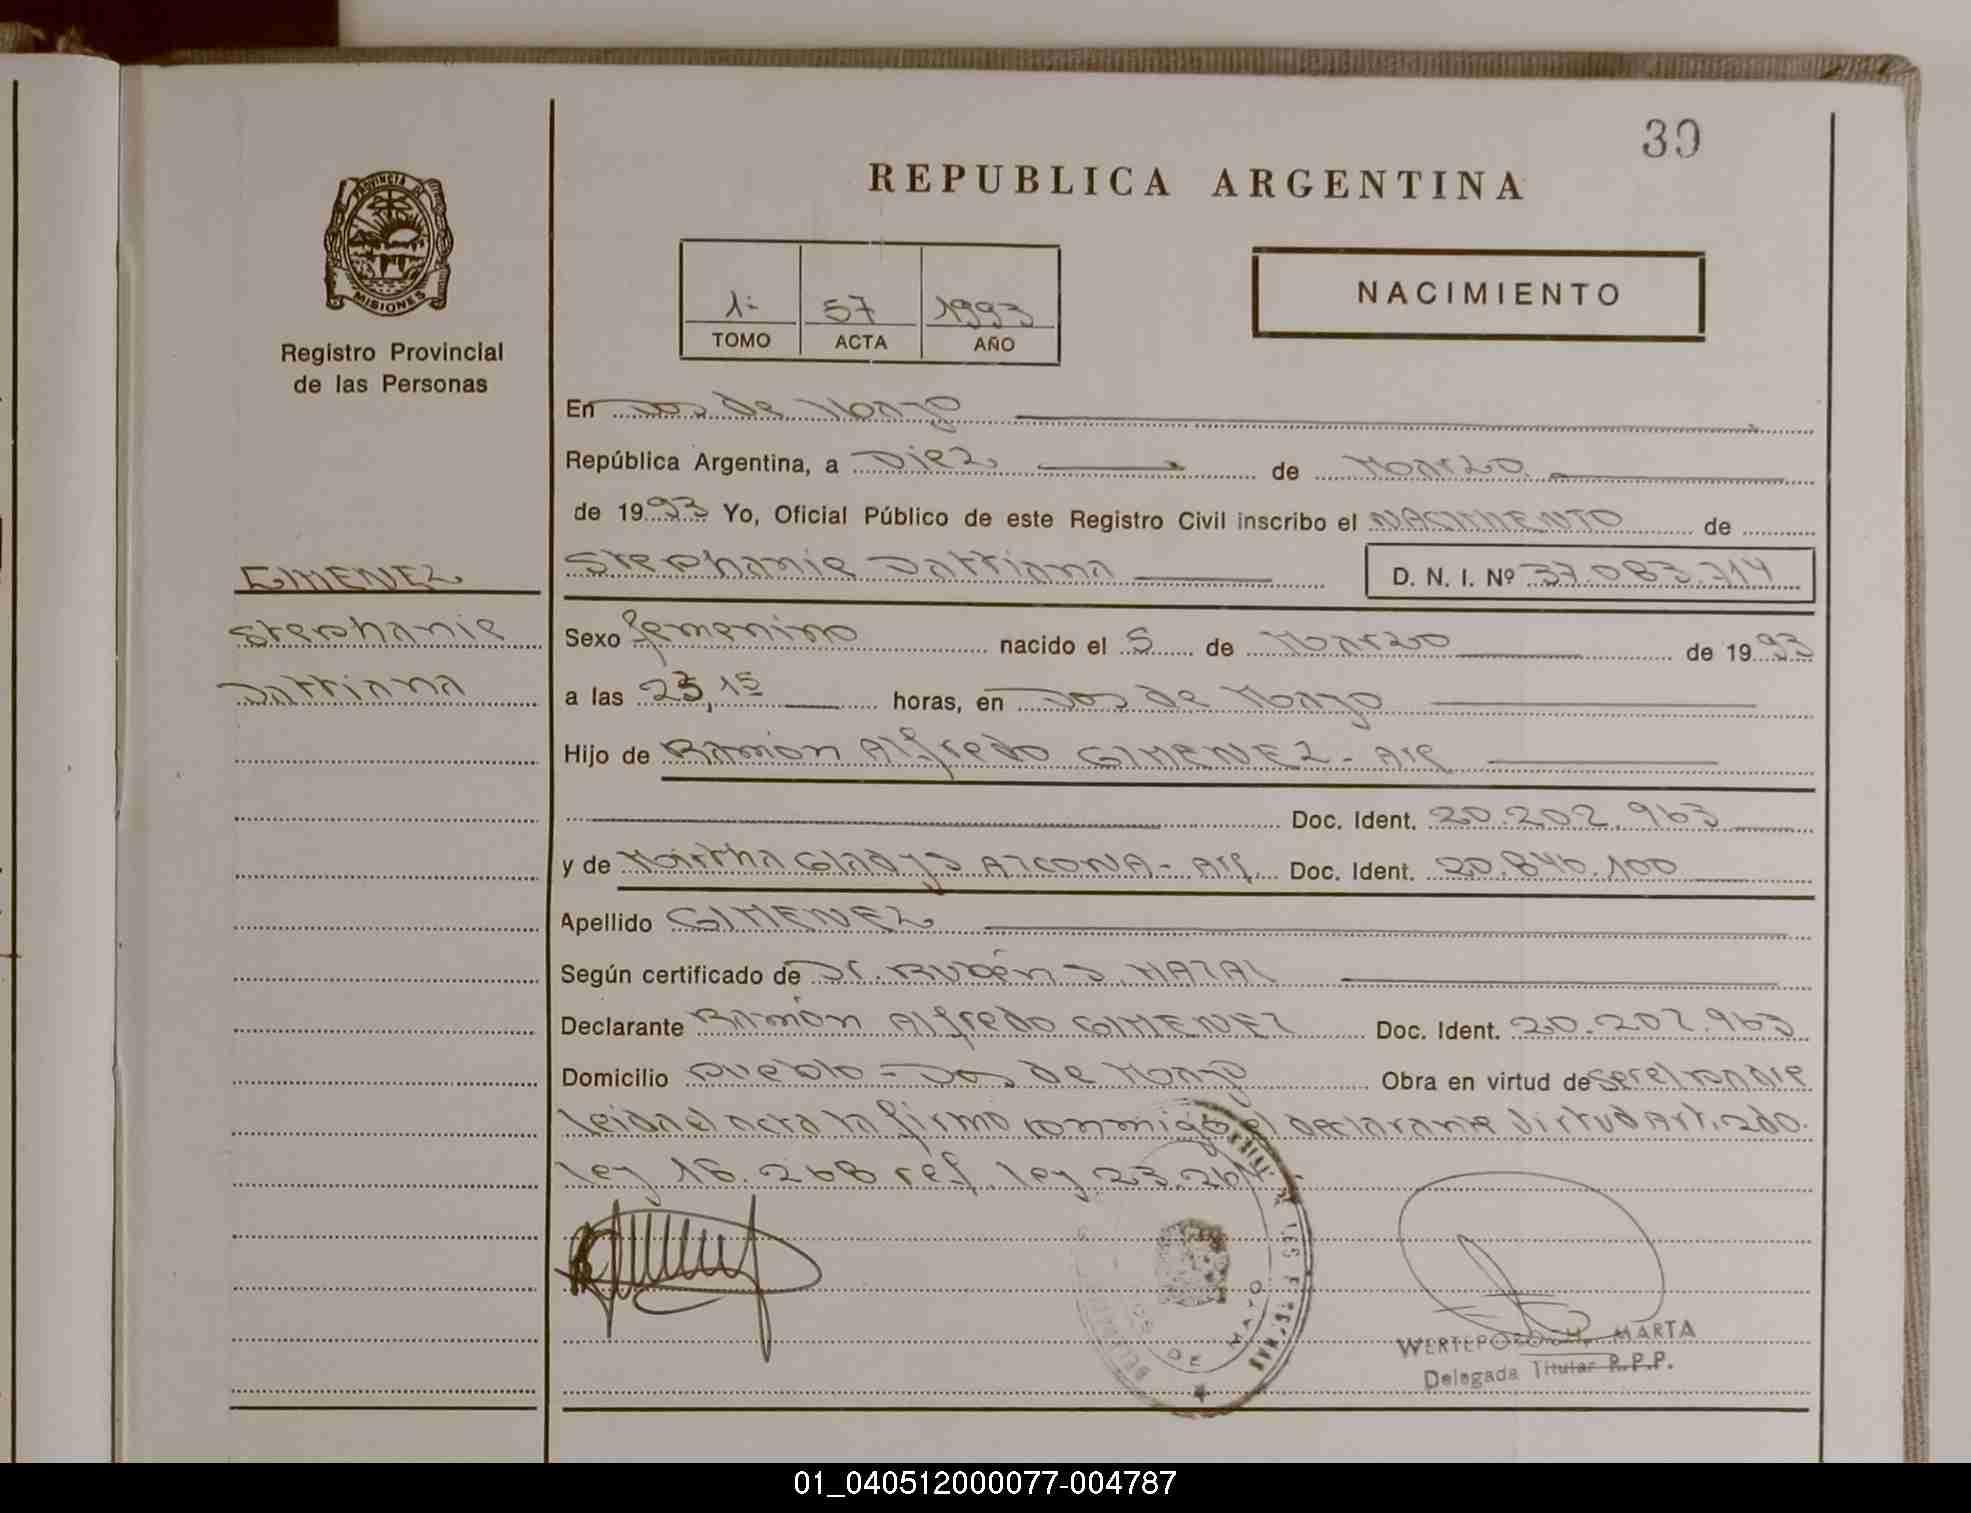 39
REPUBLICA ARGENTINA
PROVINCIA DE
MISIONES
Registro Provincial
de las Personas
1º 57 1993
TOMO ACTA AÑO
NACIMIENTO
En Dos de Mayo
República Argentina, a Diez de Marzo
de 1993 Yo, Oficial Público de este Registro Civil inscribo el NACIMIENTO de
Stephanie Dattiana D. N. I. Nº 37.083.714
GIMENEZ
Stephanie
Dattiana
Sexo femenino nacido el 5 de Marzo de 1993
a las 23,15 horas, en Dos de Mayo
Hijo de Ramón Alfredo GIMENEZ - Arg
Doc. Ident. 20.202.963
y de Martha Gladys ARCONA - Arg. Doc. Ident. 20.840.100
Apellido GIMENEZ
Según certificado de Dr. Rubén D.
Declarante Ramón Alfredo GIMENEZ Doc. Ident. 20.202.963
Domicilio Pueblo - Dos de Mayo Obra en virtud de ser el Padre
leida el acta la firmo conmigo el declarante Virtud Art. 2do.
ley 18.268 ref. ley 23.264
DE LAS PERSONAS
DOS DE MAYO
MARTA
Delegada Titular R.P.P.
01_040512000077-004787